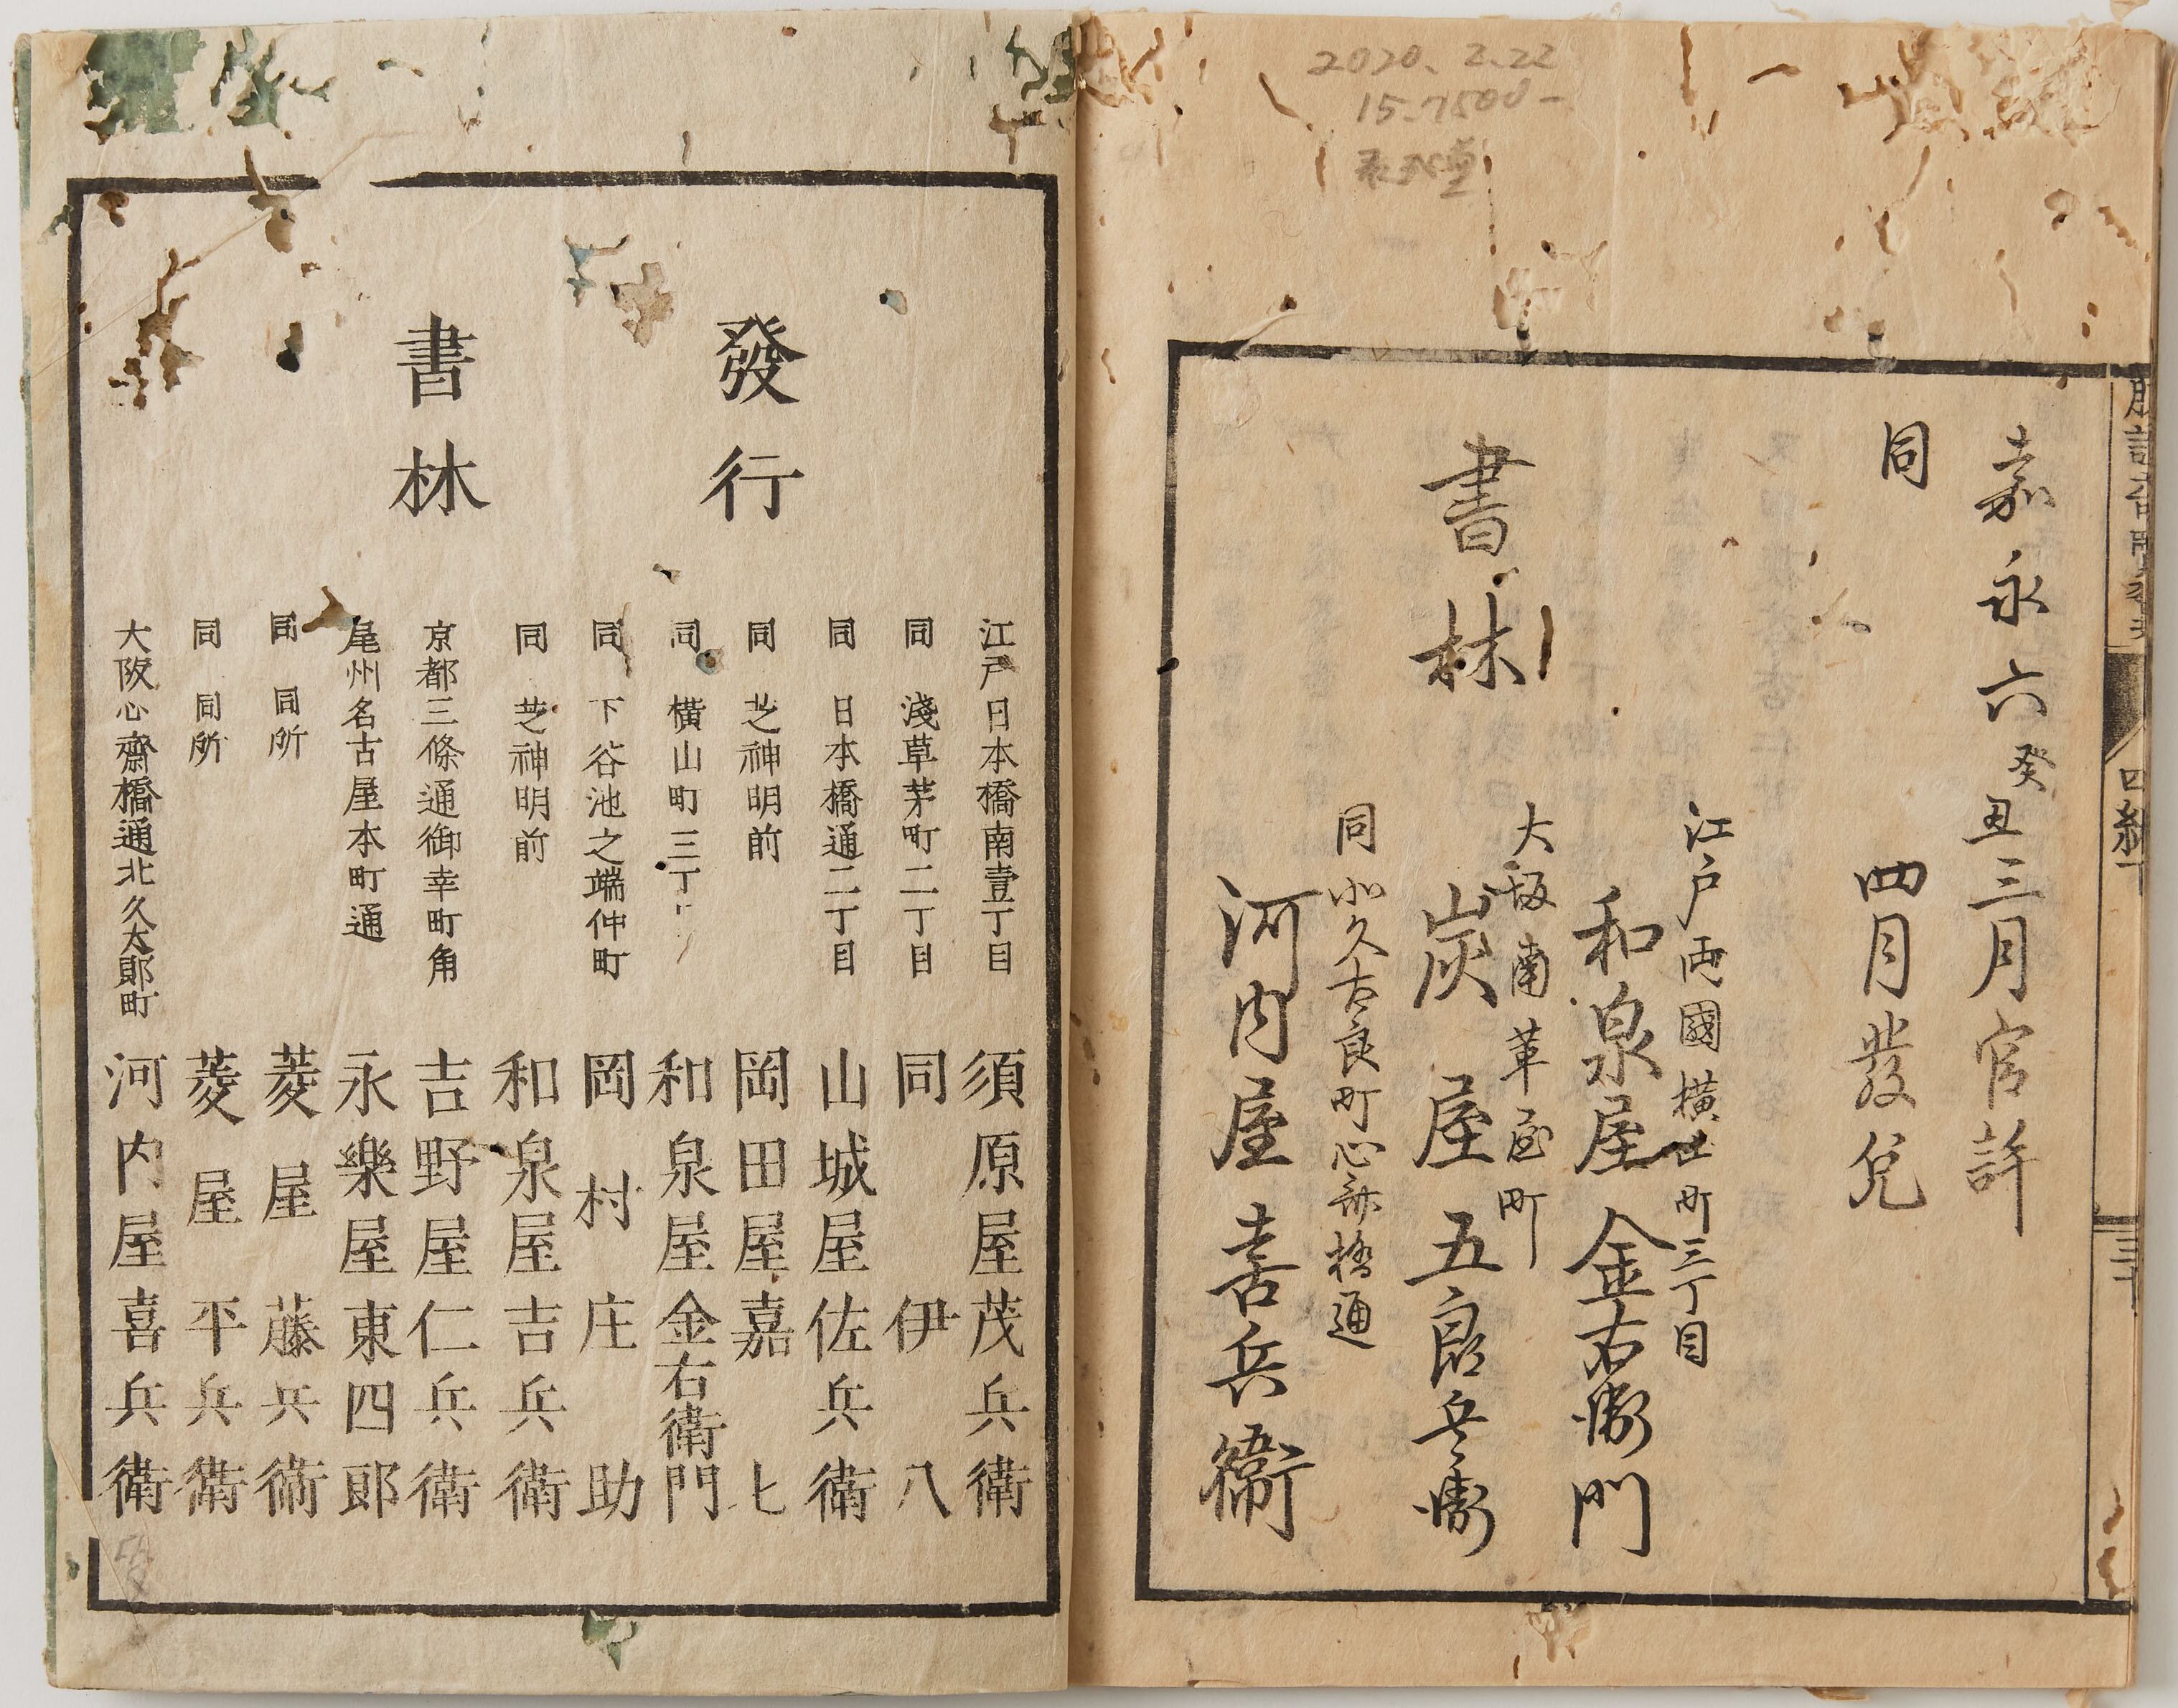 2020、2.22
嘉永六癸丑三月官許
同 四月發兌
書林
江戸両國横山町三丁目
和泉屋金右衛門
大坂南革屋町
炭屋五良兵衛
同北久古良町心斎橋通
河内屋喜兵衛
發行
書林
江戸日本橋南壹丁目 須原屋茂兵衛
同 淺草茅町二丁目 同 伊八
同 日本橋通二丁目 山城屋佐兵衛
同 芝神明前 岡田屋嘉七
同 横山町三丁 和泉屋金右衛門
同 下谷池之端仲町 岡村庄助
同 芝神明前 和泉屋吉兵衛
京都三條通御幸町角 吉野屋仁兵衛
尾州名古屋本町通 永樂屋東四郎
同 同所 菱屋藤兵衛
同 同所 菱屋平兵衛
大阪心齋橋通北久太郎町 河内屋喜兵衛